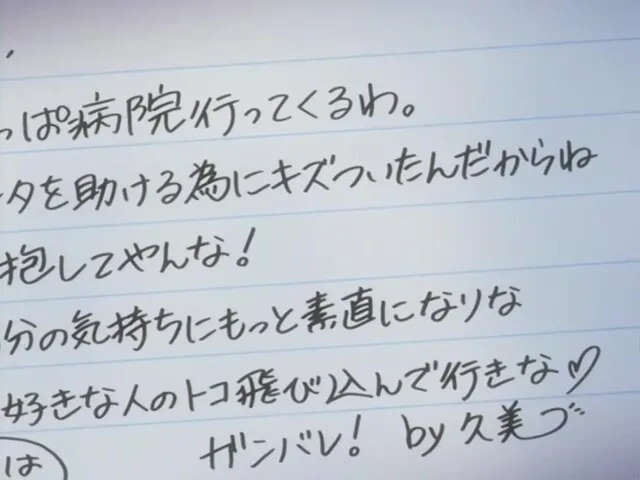 っぱ病院行ってくるわ。
タを助ける為にキズついたんだからね
抱してやんな!
分の気持ちにもっと素直になりな
好きな人のトコ飛び込んで行きな♡
ガンバレ! by久美
は